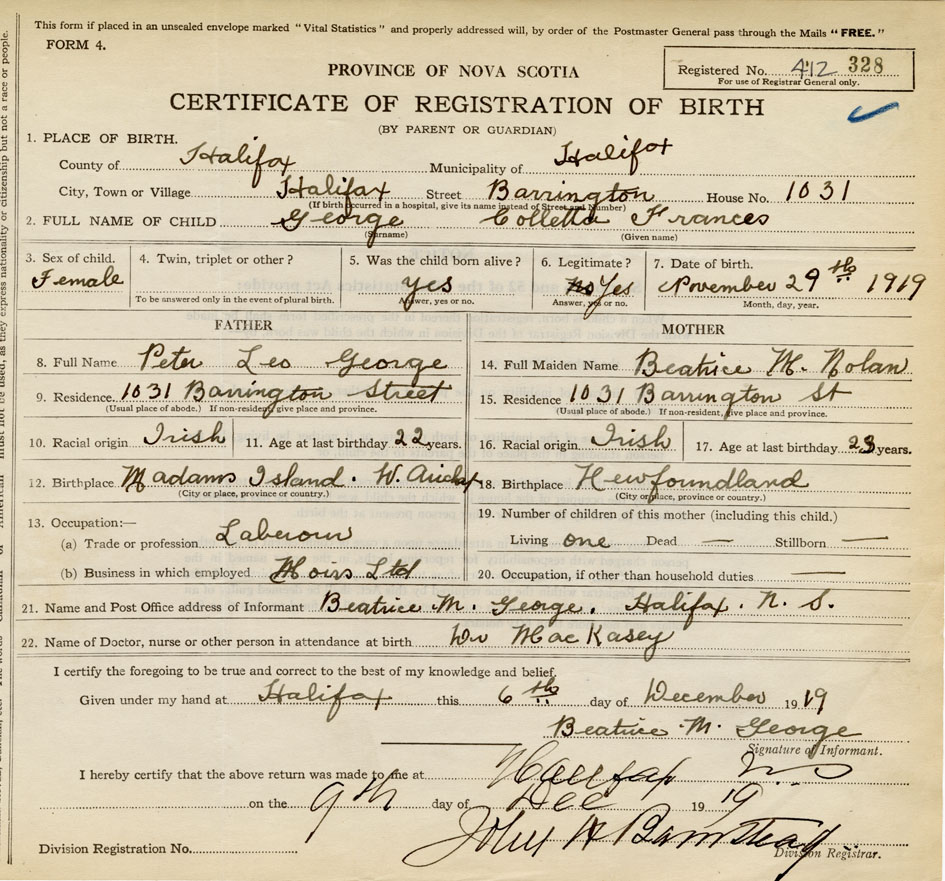 This form if placed in an unsealed envelope marked "Vital Statistics" and properly addressed will, by order of the Postmaster General pass through the Mails "FREE."
FORM 4.
Registered No. 412 328
For use of Registrar General only.
PROVINCE OF NOVA SCOTIA
CERTIFICATE OF REGISTRATION OF BIRTH
(BY PARENT OR GUARDIAN)
1. PLACE OF BIRTH.
County of Halifax Municipality of Halifax
City, Town or Village Halifax Street Barrington House No. 1031
(If birth occurred in a hospital, give its name instead of Street and Number)
2. FULL NAME OF CHILD George Colletta Frances
(Surname) (Given name)
3. Sex of child. 4. Twin, triplet or other? 5. Was the child born alive? 6. Legitimate? 7. Date of birth.
Female yes no Yes November 29th 1919
To be answered only in the event of plural birth. Answer, yes or no. Answer, yes or no. Month, day, year.
FATHER MOTHER
8. Full Name Peter Leo George 14. Full Maiden Name Beatrice M. Nolan
9. Residence. 1031 Barrington Street 15. Residence 1031 Barrington St
(Usual place of abode.) If non-resident, give place and province. (Usual place of abode.) If non-resident, give place and province.
10. Racial origin Irish 11. Age at last birthday 22 years. 16. Racial origin Irish 17. Age at last birthday 23 years.
12. Birthplace Madams Island. W. 18. Birthplace Newfoundland
(City or place, province or country.) (City or place, province or country.)
13. Occupation:— 19. Number of children of this mother (including this child.)
(a) Trade or profession. Laberour Living one Dead — Stillborn —
(b) Business in which employed Moirs Ltd 20. Occupation, if other than household duties —
21. Name and Post Office address of Informant Beatrice M. George. Halifax. N. S.
22. Name of Doctor, nurse or other person in attendance at birth Dr MacKasey
I certify the foregoing to be true and correct to the best of my knowledge and belief.
Given under my hand at Halifax this 6th day of December 1919
Beatrice M. George
Signature of Informant.
I hereby certify that the above return was made to me at Halifax NS
on the 9th day of Dec 1919
John A Barnstead
Division Registration No. Division Registrar.